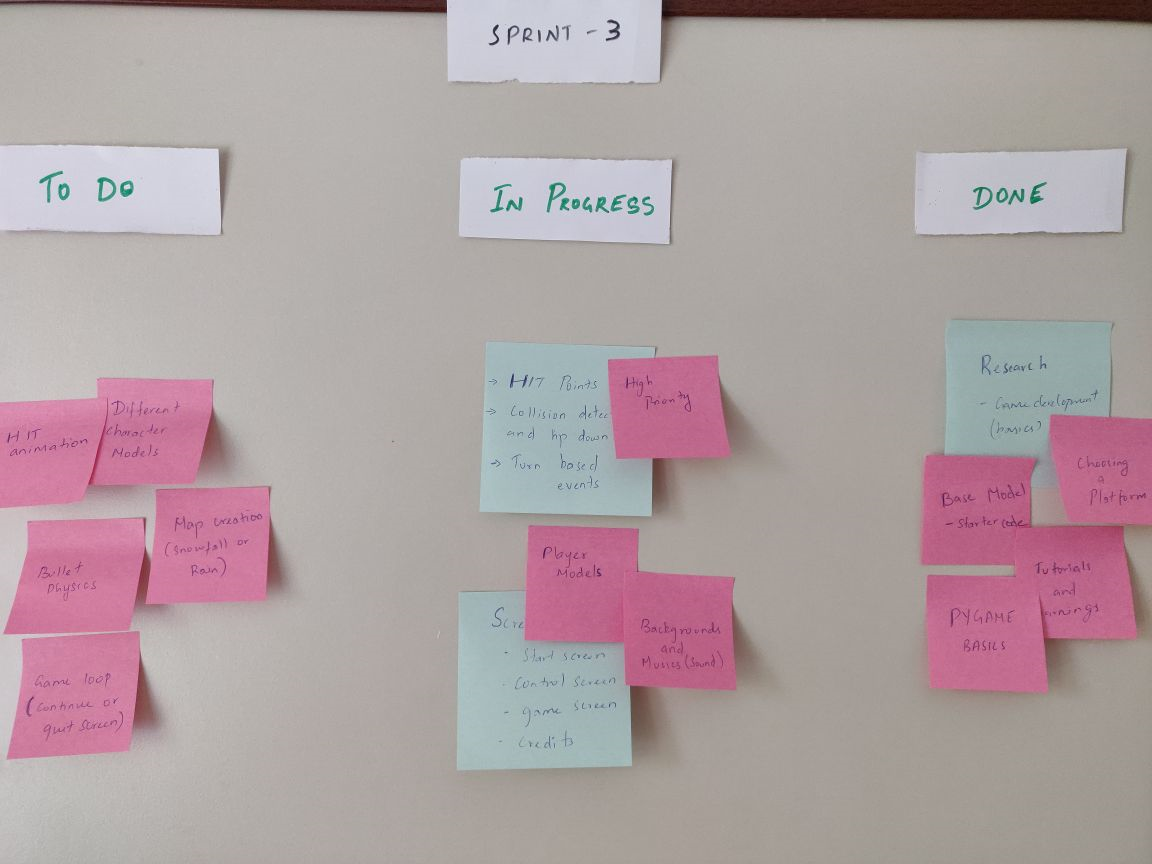 SPRINT - 3
TO DO
HIT
animation
Different
character
Models
Map creation
(Snowfall or
Rain)
Bullet
Physics
Game loop
(continue or
quit screen)
IN PROGRESS
→ HIT Points
→ Collision
and hp down
→ Turn based
events
High
Priority
Player
Models
Backgrounds
and
Musics (Sound)
- Start screen
- Control screen
- game screen
- credits
DONE
Research
- Game development
(basics)
Choosing
a
Platform
Base Model
- Starter code
Tutorials
and
PYGAME
BASICS